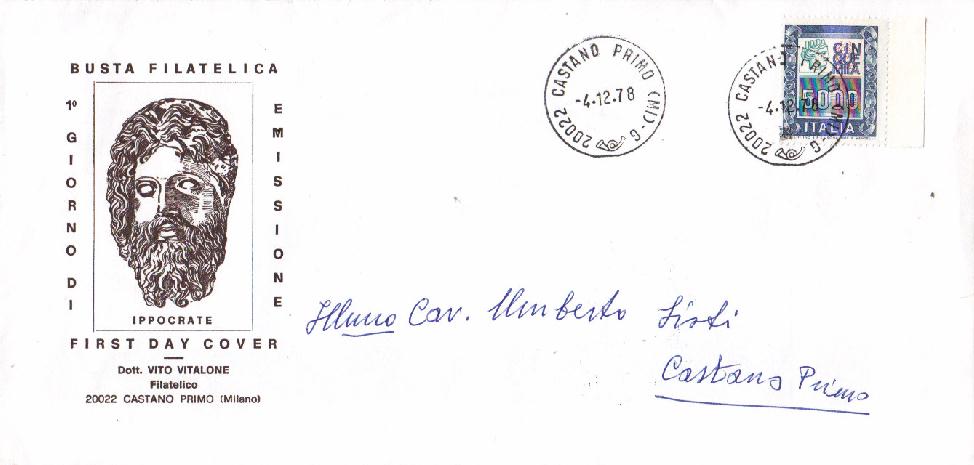 BUSTA FILATELICA
1º GIORNO DI
EMISSIONE
IPPOCRATE
FIRST DAY COVER
Dott. VITO VITALONE
Filatelico
20022 CASTANO PRIMO (Milano)
20022 CASTANO PRIMO (MI)-G
-4.12.78
20022 CASTANO PRIMO (MI)-G
-4.12.78
CIN
QUE
MILA
5000
ITALIA
Illmo Cav. Umberto Sisti
Castano Primo